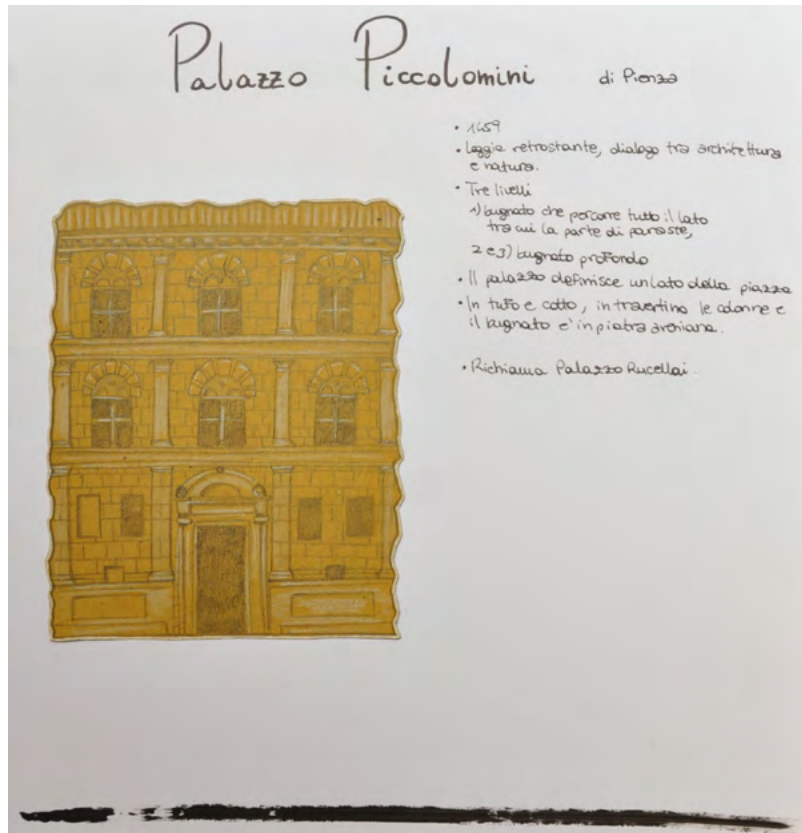 Palazzo Piccolomini di Pienza
• 1459
• Loggia retrostante, dialogo tra architettura
e natura.
• Tre livelli
1) bugnato che percorre tutto il lato
tra cui la parte di paraste,
2 e 3) bugnato profondo
• Il palazzo definisce un lato della piazza
• In tufo e cotto, in travertino le colonne e
il bugnato e' in pietra areniana.
• Richiama Palazzo Rucellai.